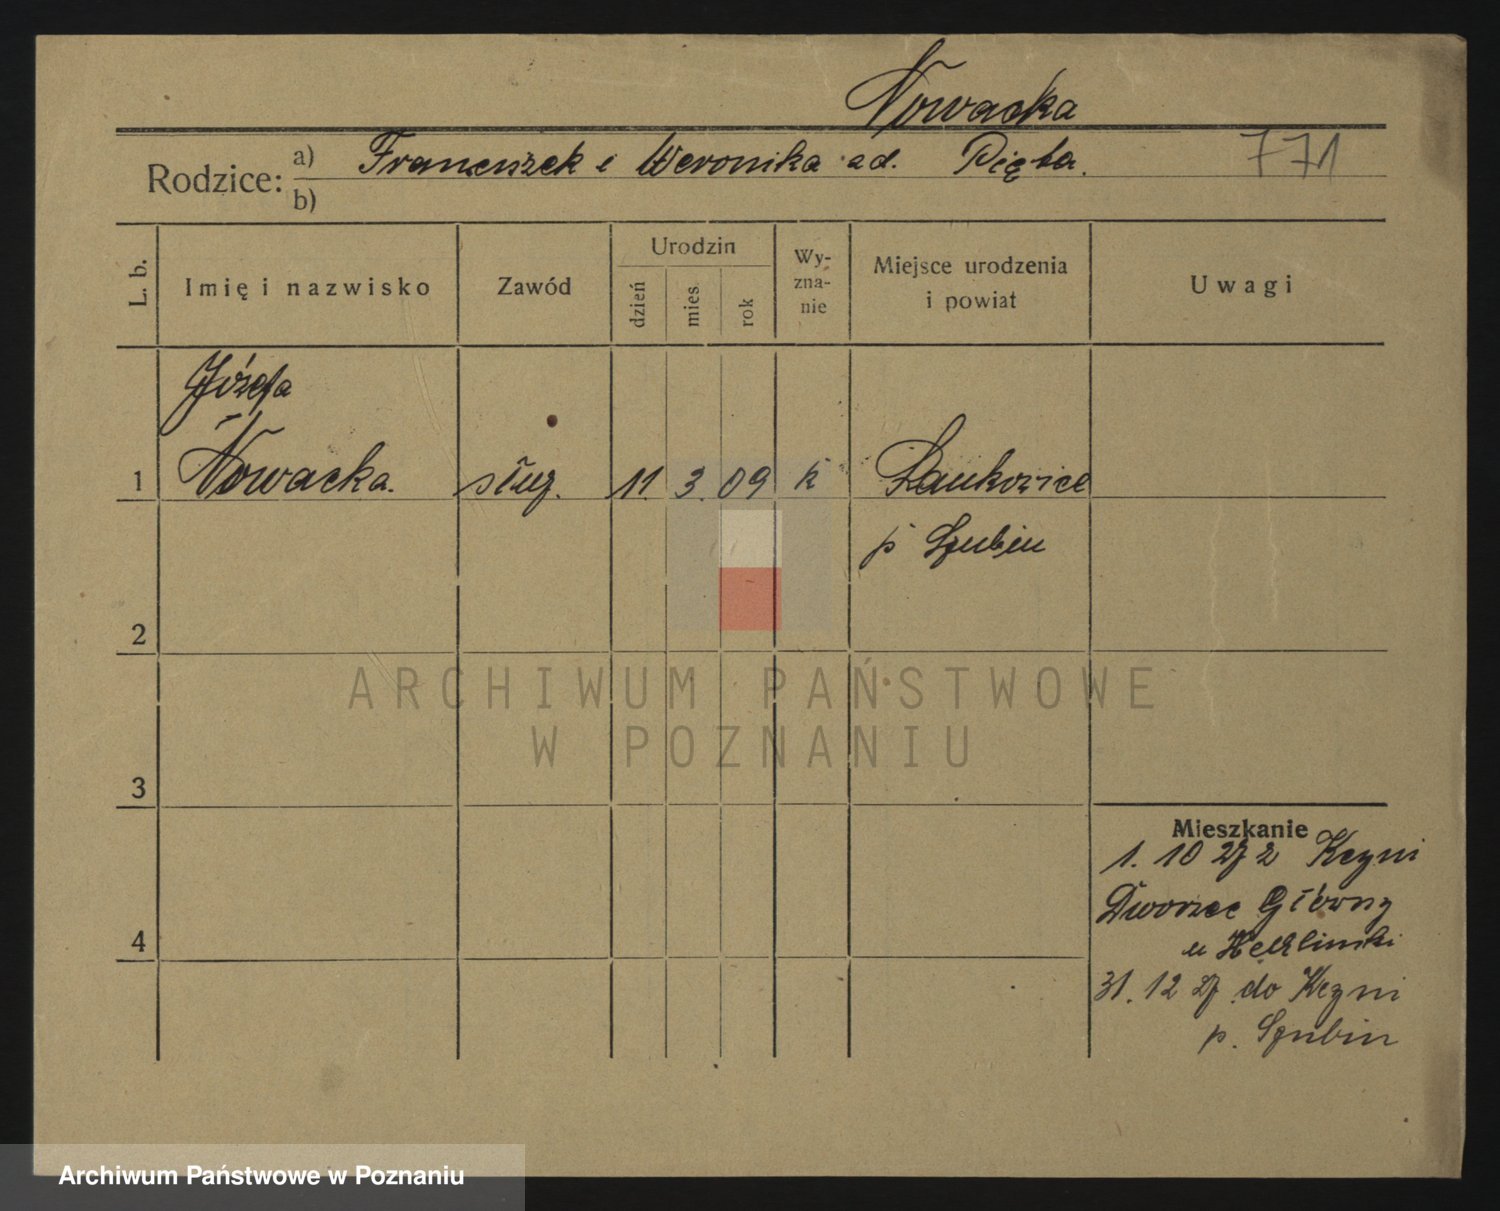 Nowacka
Rodzice: a) Franciszek i Weronika zd. Pięta. 771
b)
L. b. Imię i nazwisko Zawód Urodzin dzień mies. rok Wy-zna-nie Miejsce urodzenia i powiat Uwagi
Józefa
1 Nowacka. służ. 11. 3. 09 k
p Szubin
2
ARCHIWUM PAŃSTWOWE
W POZNANIU
3
Mieszkanie
1. 10 27 z Kcyni
Dworzec Główny
4
u
31. 12 27 do Kcyni
p. Szubin
Archiwum Państwowe w Poznaniu